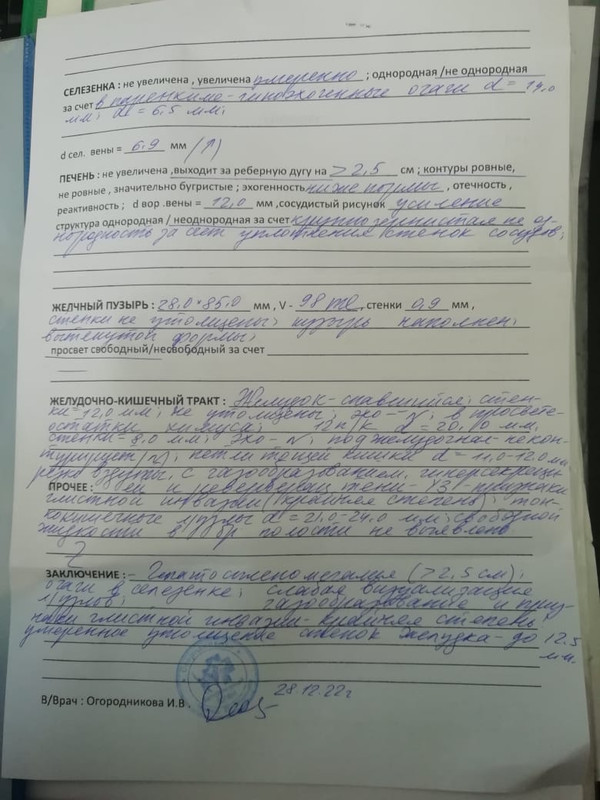 СЕЛЕЗЕНКА : не увеличена , увеличена умеренно ; однородная /не однородная
за счет в паренхиме - гипоэхогенные очаги d = 19.0
мм; d = 6,5 мм;
d сел. вены = 6.9 мм (↑)
ПЕЧЕНЬ : не увеличена ,выходит за реберную дугу на > 2,5 см ; контуры ровные,
не ровные , значительно бугристые ; эхогенность ниже нормы , отечность ,
реактивность ; d вор .вены = 12,0 мм ,сосудистый рисунок усиление
структура однородная / неоднородная за счет крупнозернистая не од-
нородность за счет уплотнения стенок сосудов;
ЖЕЛЧНЫЙ ПУЗЫРЬ : 28,0 * 85,0 мм , V - 98 ml , стенки 0,9 мм ,
стенки не утолщены; пузырь наполнен;
вытянутой формы;
просвет свободный/несвободный за счет
ЖЕЛУДОЧНО-КИШЕЧНЫЙ ТРАКТ : Желудок - спавшийся; стен-
ки = 12,0 мм; не утолщены; эхо - N; в просвете
остатки химуса; 12 п/к d = 20,10 мм,
стенки - 8.0 мм; эхо - N; поджелудочная - не кон-
турирует /N/; петли тощей кишки d = 11,0-12.0 мм
резко вздуты, с газообразованием, гиперсекреции
ПРОЧЕЕ : УЗ - признаки
глистной инвазии (крайняя степень); тон-
кокишечные л/узлы d = 21.0-24.0 мм; свободной
жидкости в бр полости не выявлено
ЗАКЛЮЧЕНИЕ : - Гепатоспленомегалия (> 2,5 см);
очаги в селезенке; слабая визуализация
л/узлов; газообразование и приз-
наки глистной инвазии - крайняя степень
умеренное утолщение стенок желудка - до 12.5
мм.
28.12.22г
В/Врач : Огородникова И.В .